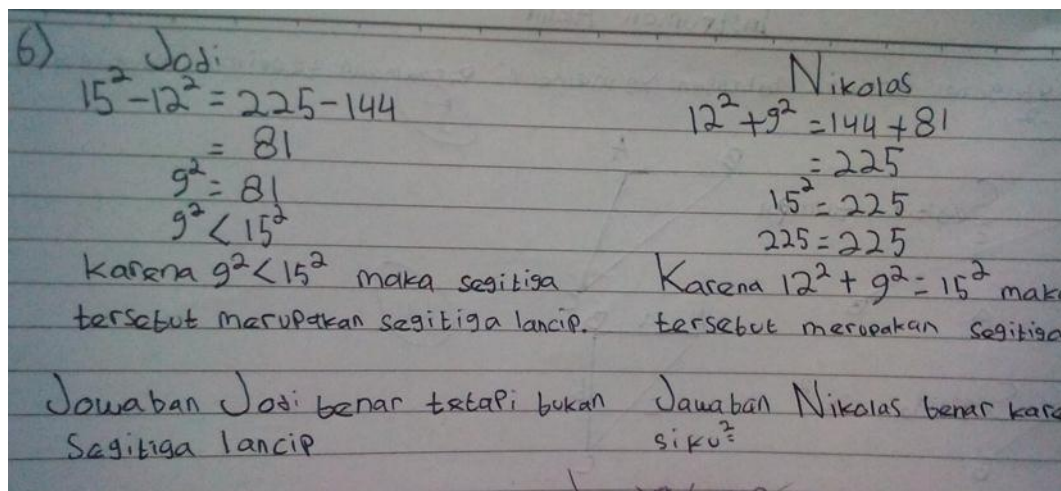 6) Jodi
15² - 12² = 225 - 144
= 81
9² = 81
9² < 15²
Karena 9² < 15² maka segitiga
tersebut merupakan segitiga lancip.
Jawaban Jodi benar tetapi bukan
Segitiga lancip
Nikolas
12² + 9² = 144 + 81
= 225
15² = 225
225 = 225
Karena 12² + 9² = 15² mak
tersebut merupakan segitiga
Jawaban Nikolas benar kare
siku²